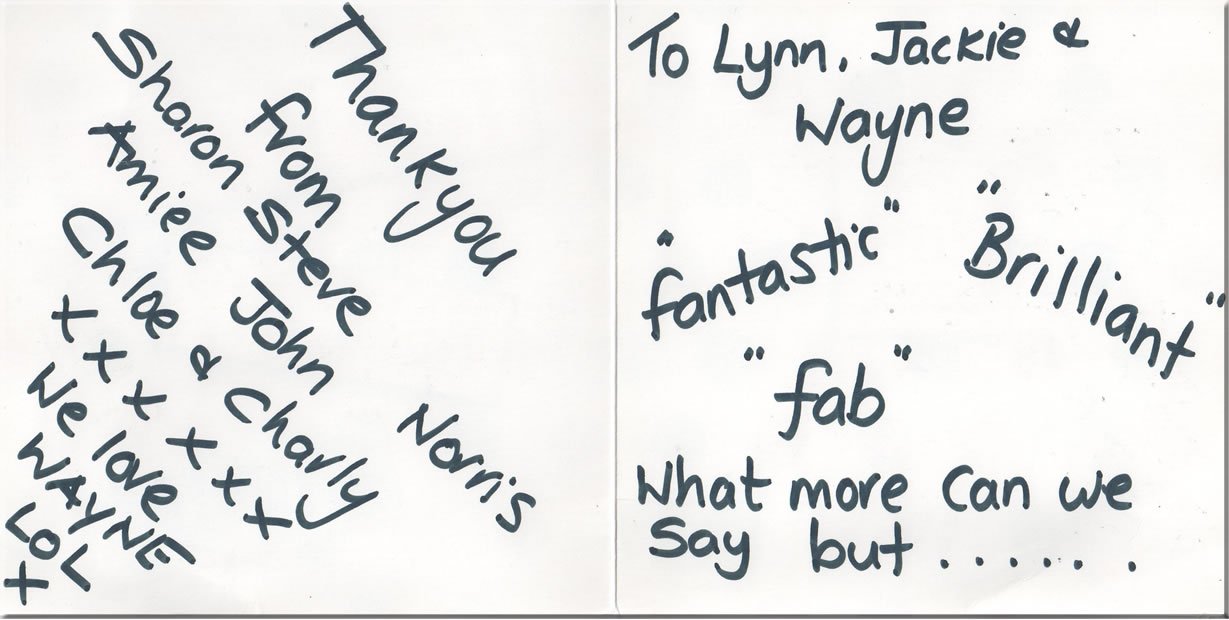 Thankyou
from
Sharon Steve
Amiee John Norris
Chloe & Charly
x x x x x x
We love
WAYNE
LOL
x
To Lynn, Jackie &
Wayne
"fantastic" "Brilliant"
"fab"
What more Can we
Say but . . . . . . .